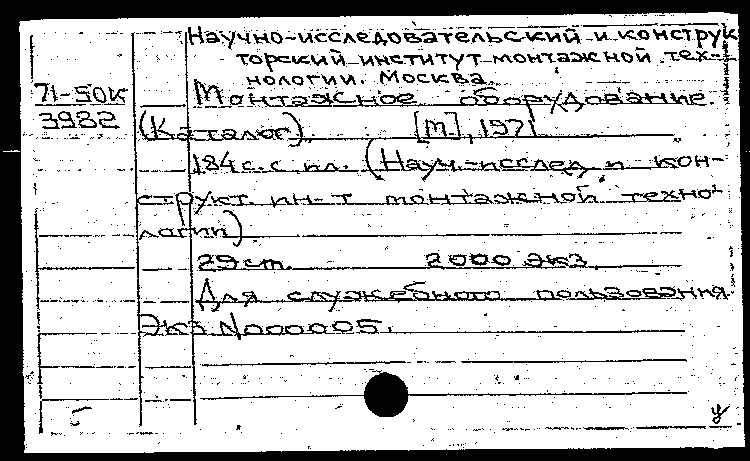 Научно-исследовательский и конструк
торский институт монтажной тех-
нологии. Москва.
71-50к
3982
Монтажное оборудование.
(Каталог). [М], 1971
184 с. с ил. (Науч.-исслед и кон-
структ. ин-т монтажной техно-
логии).
29 cm. 2000 экз.
Для служебного пользования.
Экз. N000005.
б у